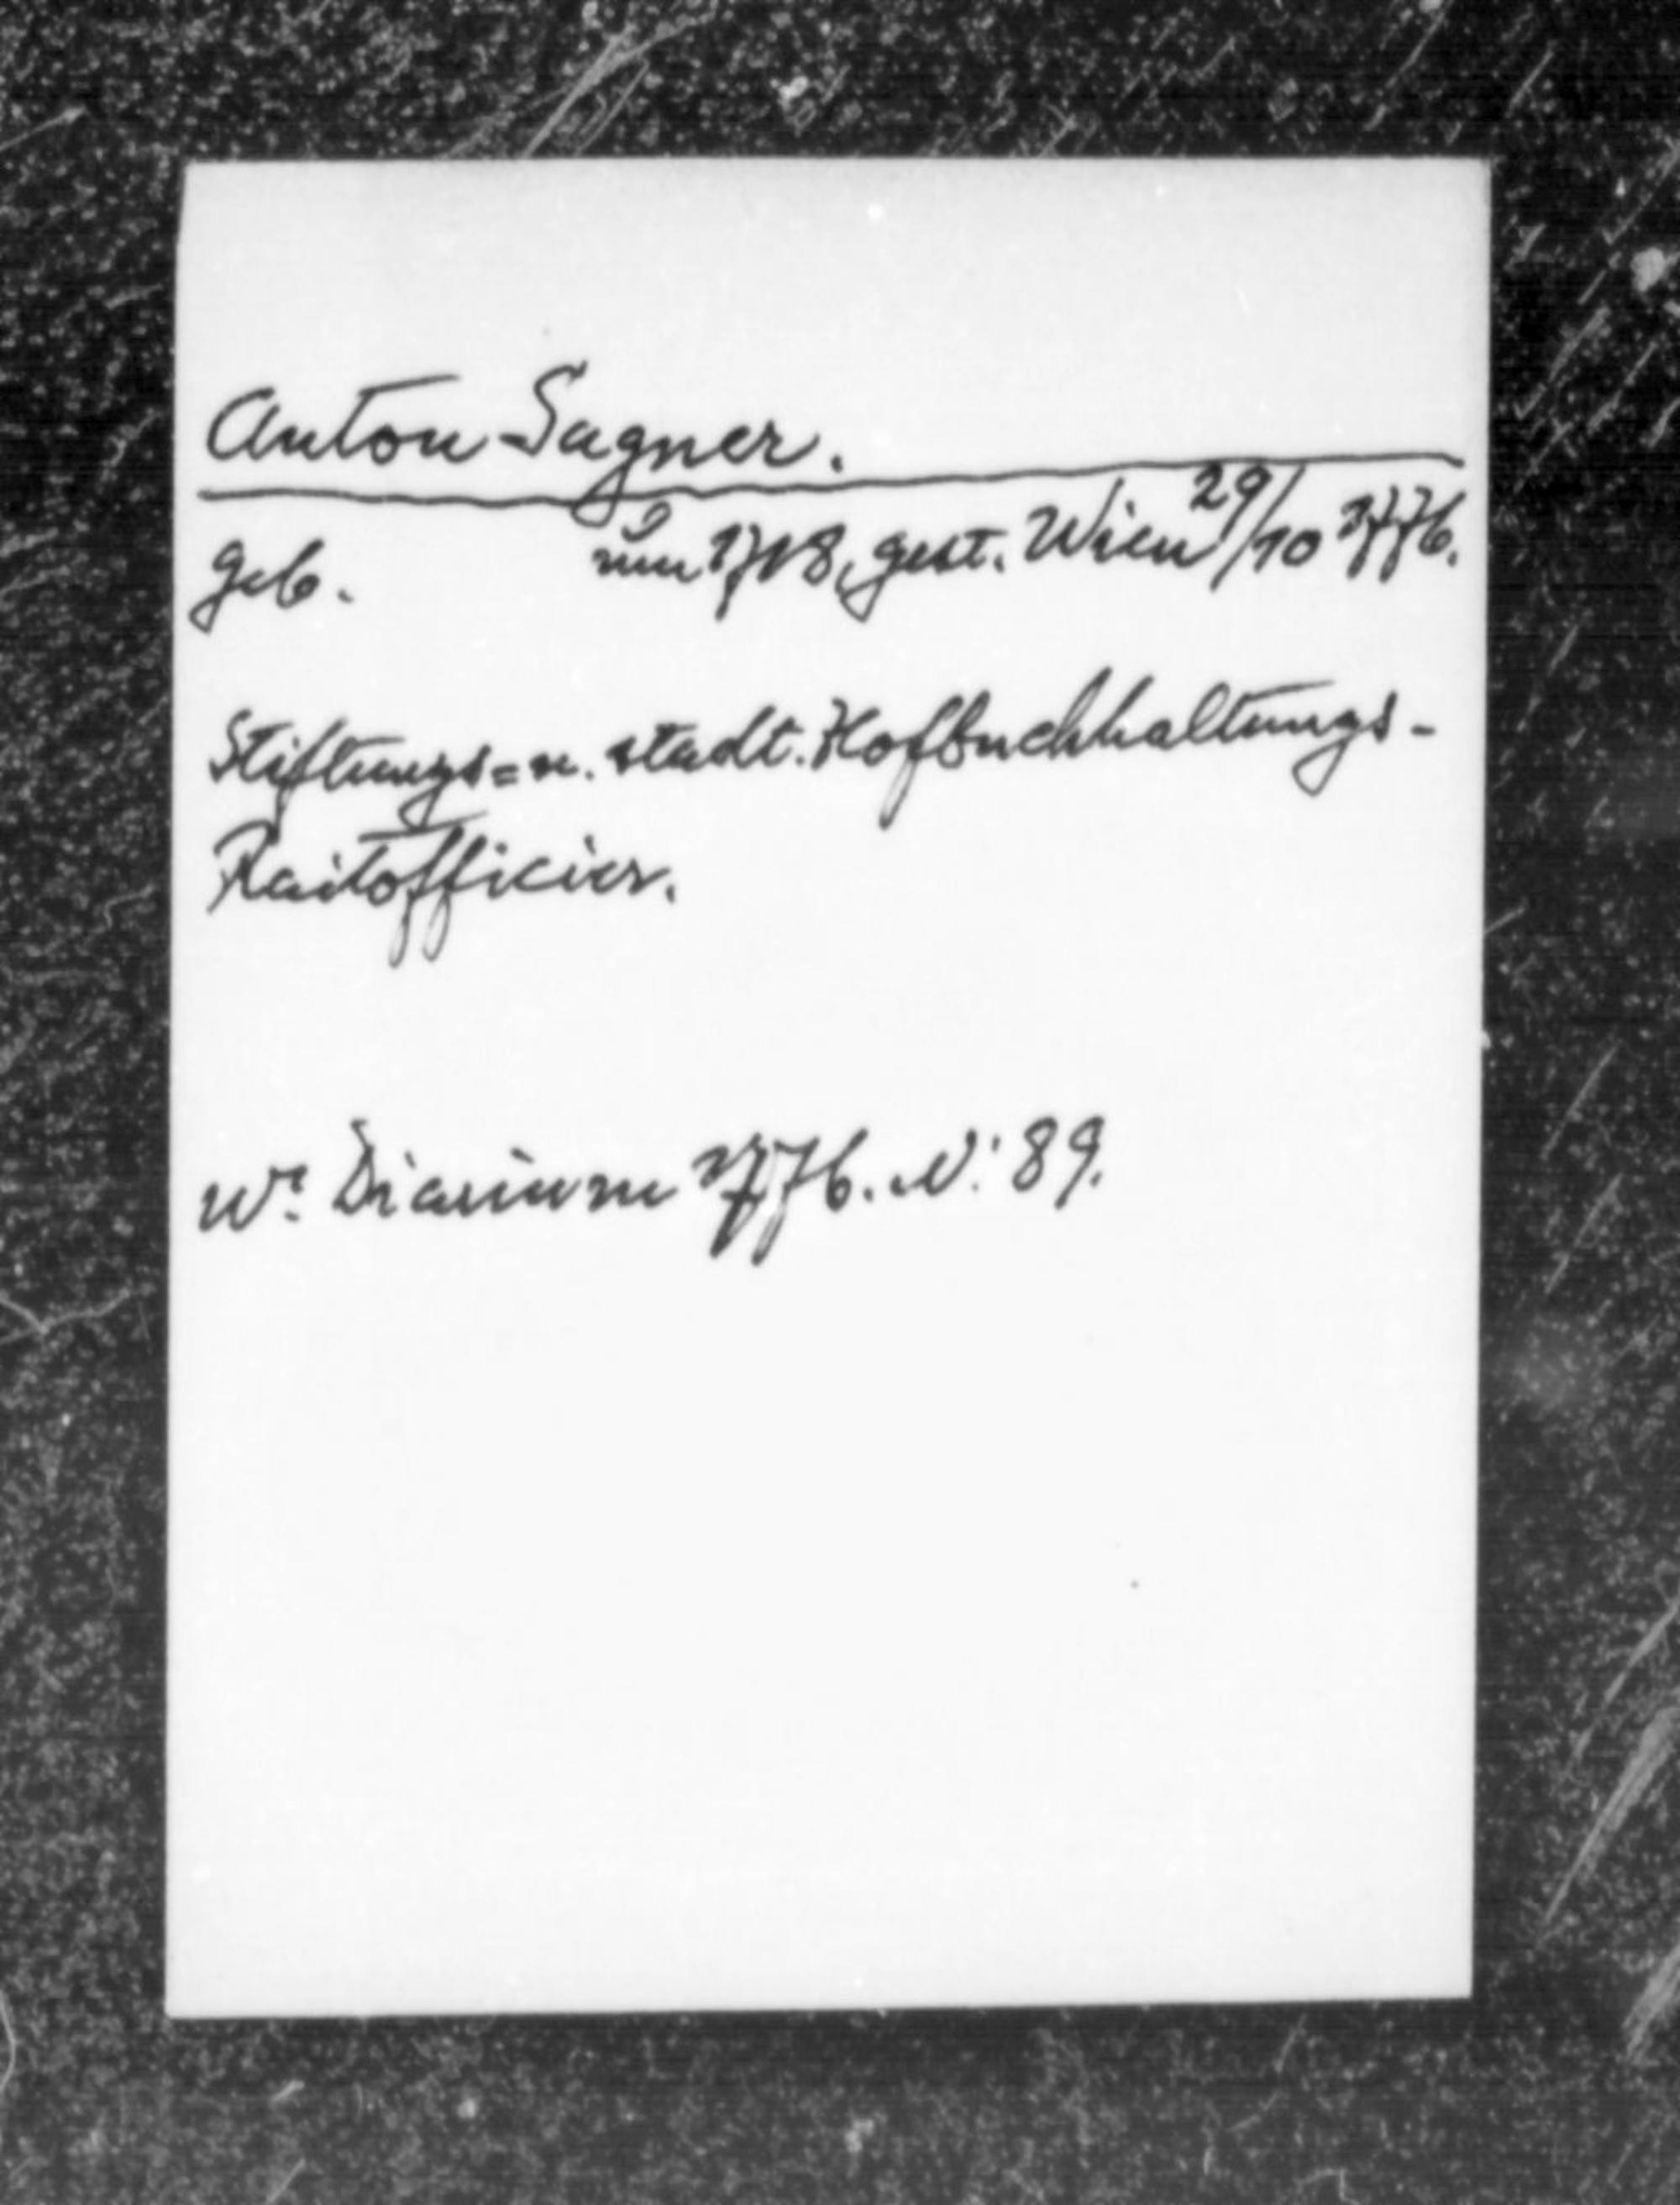 Anton Sagner.
geb. um 1718, gest. Wien 29/10 1776.
Stiftungs= u. stadt. Hofbuchhaltungs-
Raitofficier.
Wr. Diarium 1776. N: 89.